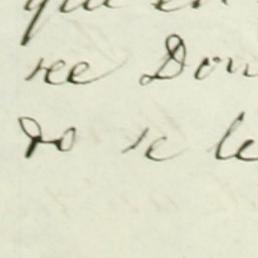 que en
see Don
do se le